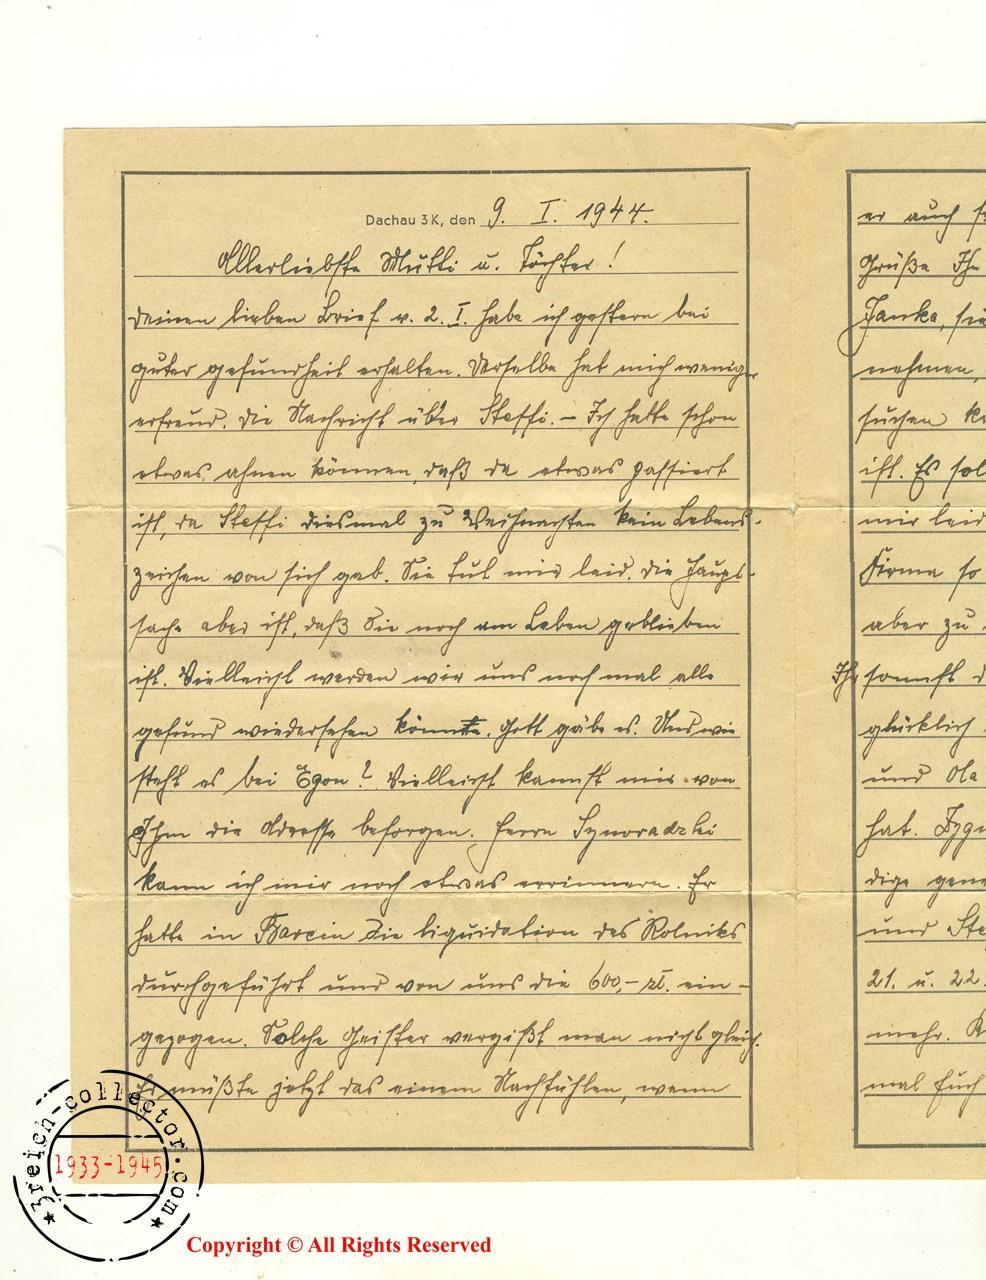 Dachau 3K, den 9. I. 1944.
Allerliebste Mutti u. Töchter!
Deinen lieben Brief v. 2. I. habe ich gestern bei
guter gesundheit erhalten. Derselbe hat mich weniger
erfreud. Die Nachricht über Steffi. – Ich hatte schon
etwas ahnen können, daß da etwas passiert
ist, da Steffi diesmal zu Weihnachten kein Lebens-
zeichen von sich gab. Sie tut mir leid. Die Haupt-
sache aber ist, daß Sie noch am Leben geblieben
ist. Vielleicht werden wir uns noch mal alle
gesund wiedersehen könnte. Gott gäbe es. Und wie
steht es bei Egon? Vielleicht kannst mir von
Ihm die Adresse besorgen. Herrn Synoradzki
kann ich mir noch etwas errinnern. Er
hatte in Barcin die liquidation des Rolniks
durchgeführt und von uns die 600,– zł. ein-
gezogen. Solche Geister vergißt man nicht gleich.
Er müßte jetzt das einem Nachfühlen, wenn
er auch
Grüße Ihn
Janka,
nehmen,
suchen
ist. Es
mir leid
Firma so
aber zu
Ihr sonnst
glücklich
und Ola
hat.
dige
und
21. u. 22.
mehr.
mal Euch
3reich-collector.com
1933-1945
Copyright © All Rights Reserved